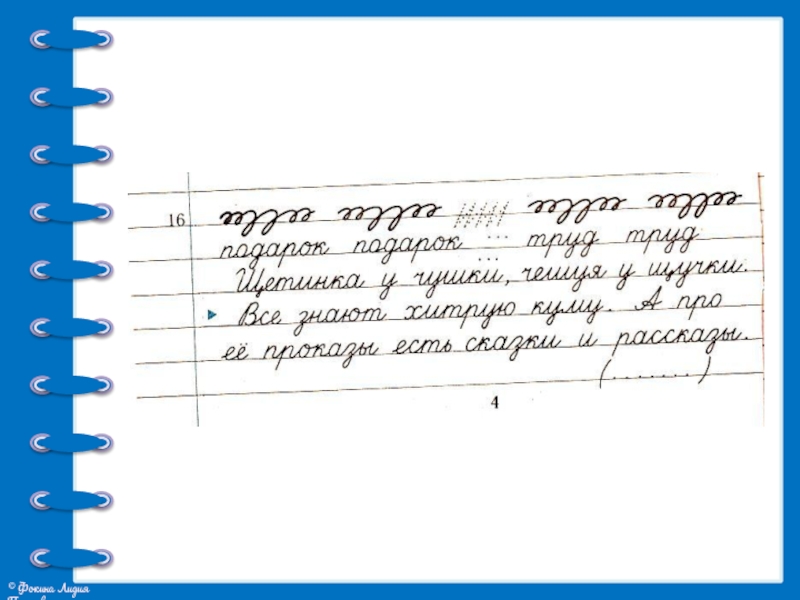 16
подарок подарок ... труд труд
Щетинка у чушки, чешуя у щучки.
Все знают хитрую куму. А про
её проказы есть сказки и рассказы.
(.......)
4
© Фокина Лидия